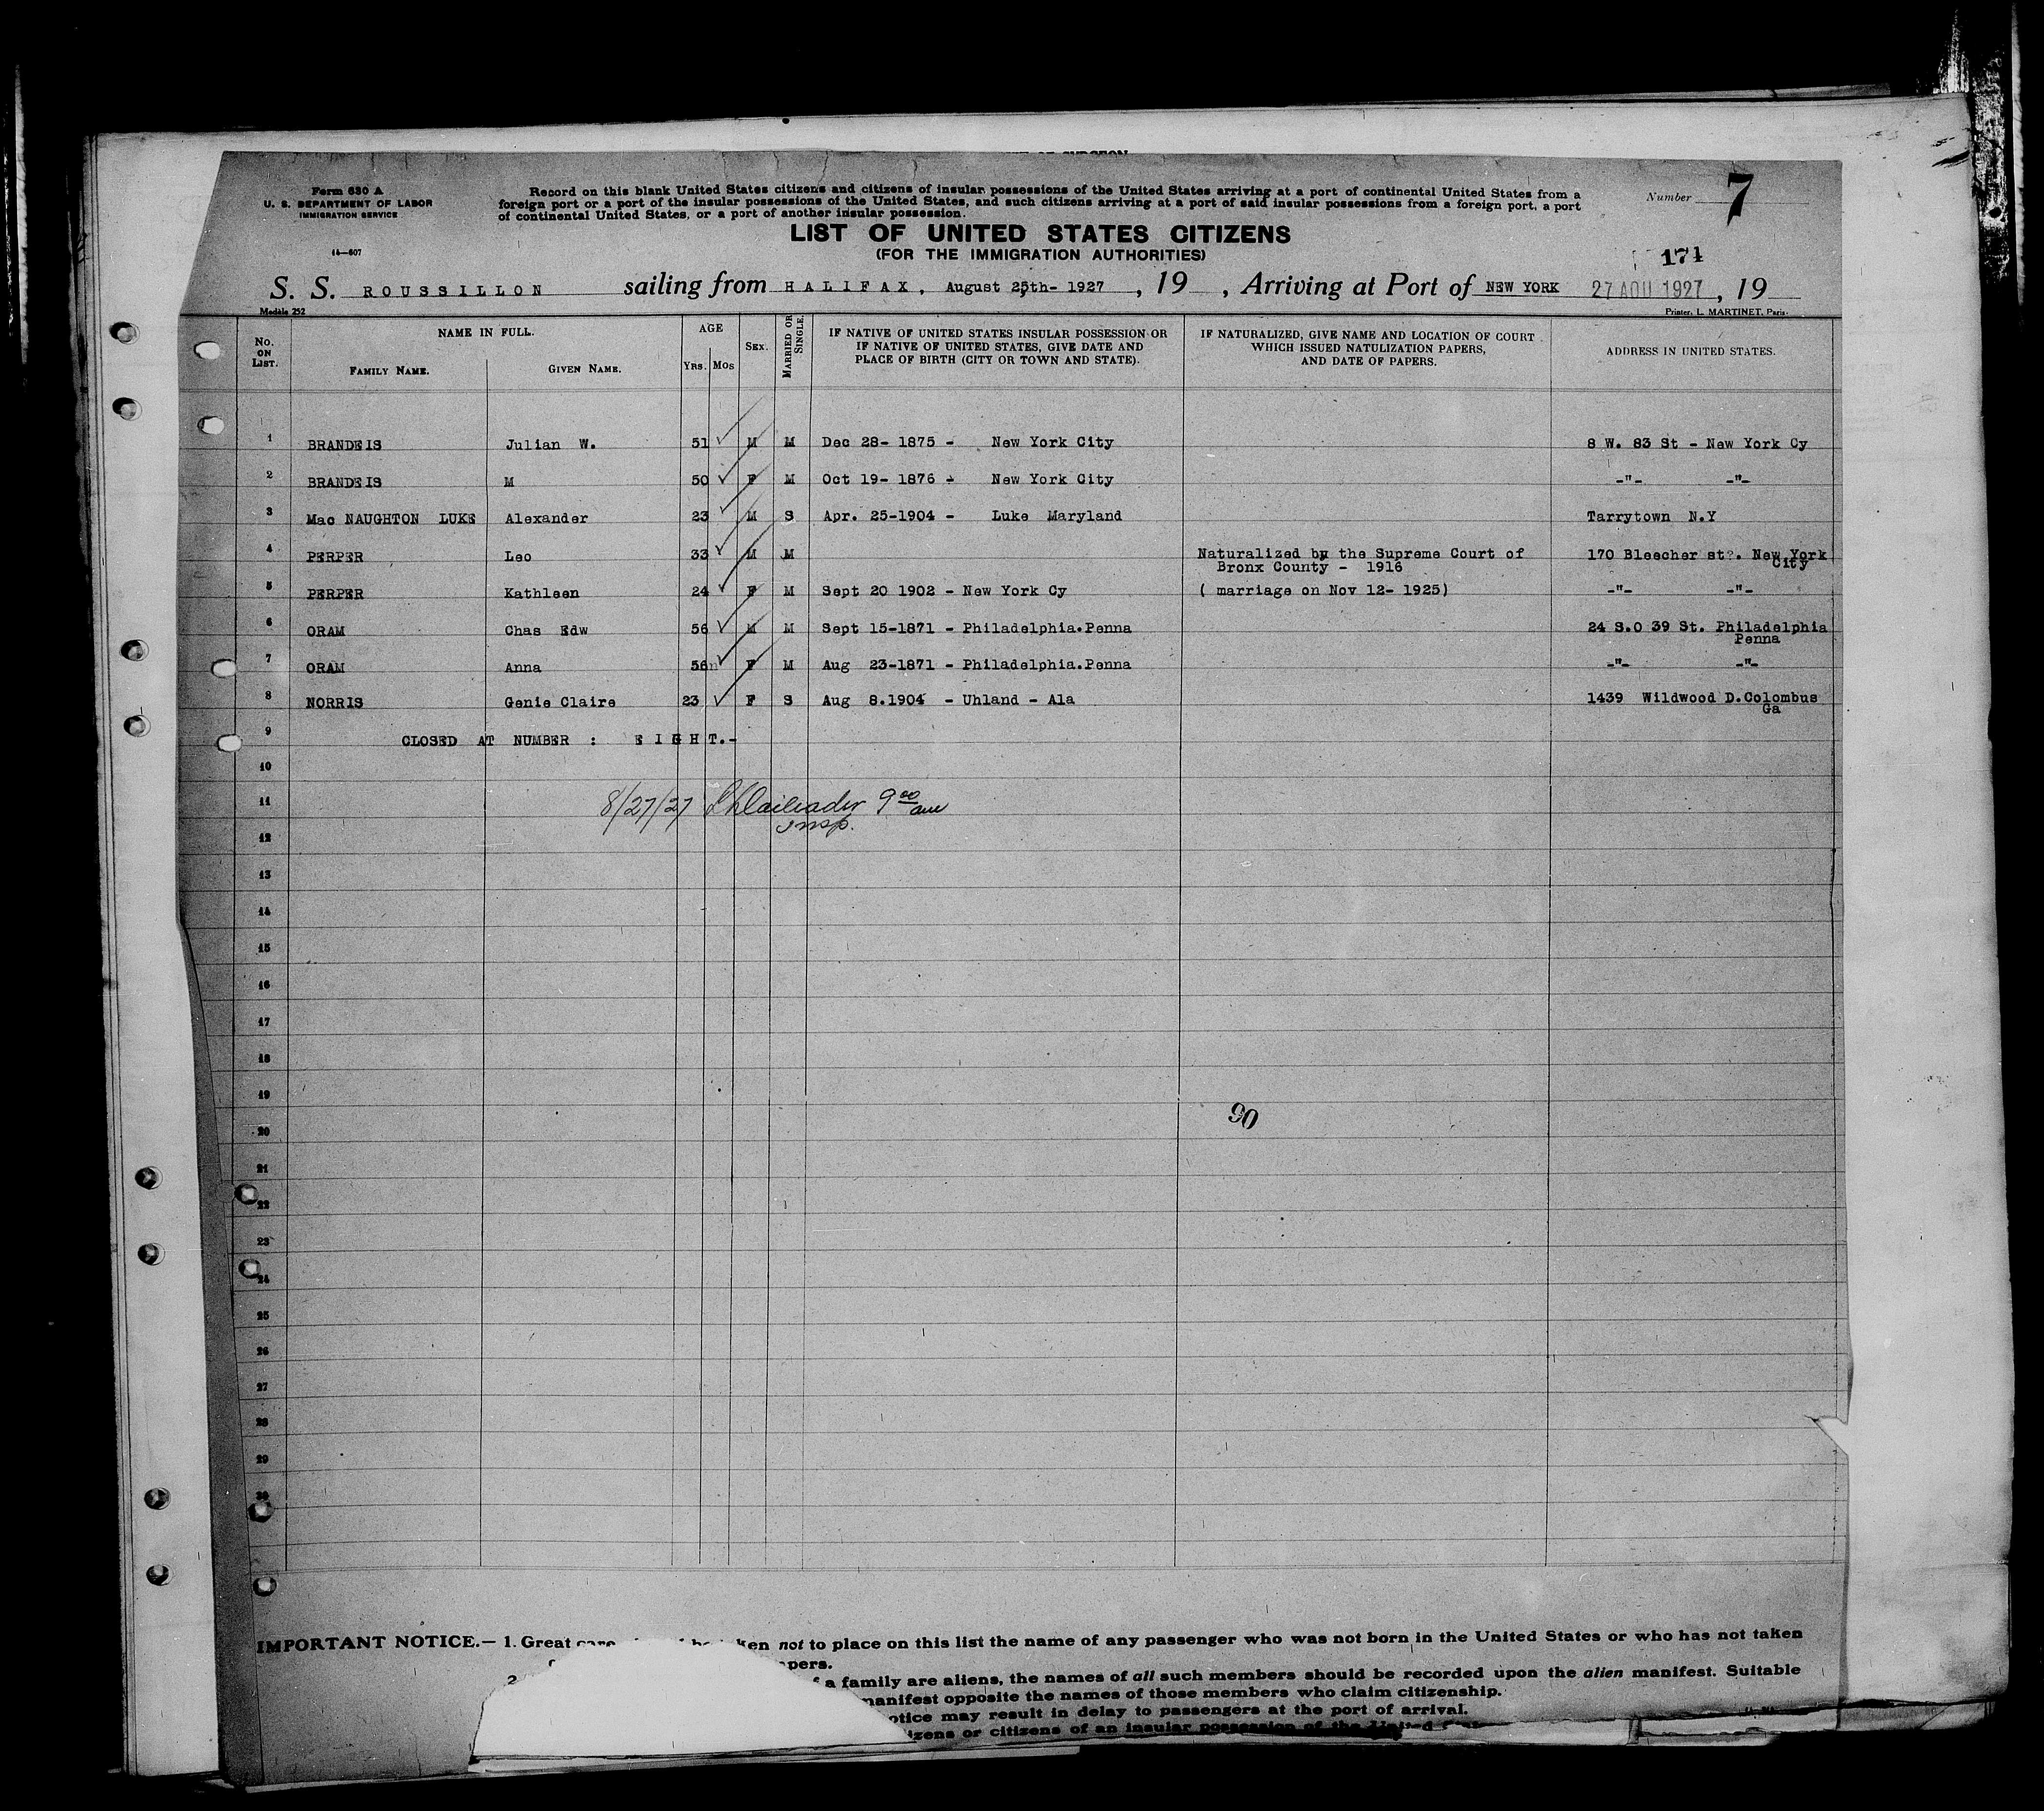 Form 630 A
U. S. DEPARTMENT OF LABOR
IMMIGRATION SERVICE
14—607
Record on this blank United States citizens and citizens of insular possessions of the United States arriving at a port of continental United States from a
foreign port or a port of the insular possessions of the United States, and such citizens arriving at a port of said insular possessions from a foreign port, a port
of continental United States, or a port of another insular possession.
Number 7
LIST OF UNITED STATES CITIZENS
(FOR THE IMMIGRATION AUTHORITIES)
174
S. S. ROUSSILLON sailing from HALIFAX, August 25th- 1927, 19 , Arriving at Port of NEW YORK 27 AOU 1927, 19
Modèle 252
Printer, L. MARTINET, Paris.
No. ON LIST.
NAME IN FULL.
FAMILY NAME.
GIVEN NAME.
AGE
YRS. MOS
SEX.
MARRIED OR SINGLE.
IF NATIVE OF UNITED STATES INSULAR POSSESSION OR
IF NATIVE OF UNITED STATES, GIVE DATE AND
PLACE OF BIRTH (CITY OR TOWN AND STATE).
IF NATURALIZED, GIVE NAME AND LOCATION OF COURT
WHICH ISSUED NATULIZATION PAPERS,
AND DATE OF PAPERS.
ADDRESS IN UNITED STATES.
1 BRANDEIS Julian W. 51 M M Dec 28- 1875 - New York City 8 W. 83 St - New York Cy
2 BRANDEIS M 50 F M Oct 19- 1876 - New York City -"- -"-
3 Mac NAUGHTON LUKE Alexander 23 M S Apr. 25-1904 - Luke Maryland Tarrytown N.Y
4 PERPER Leo 33 M M Naturalized by the Supreme Court of 170 Bleecher st?. New York
Bronx County - 1916 City
5 PERPER Kathleen 24 F M Sept 20 1902 - New York Cy ( marriage on Nov 12- 1925) -"- -"-
6 ORAM Chas Edw 56 M M Sept 15-1871 - Philadelphia.Penna 24 S.O 39 St. Philadelphia
Penna
7 ORAM Anna 56 F M Aug 23-1871 - Philadelphia.Penna -"- -"-
8 NORRIS Genie Claire 23 F S Aug 8.1904 - Uhland - Ala 1439 Wildwood D.Colombus
Ga
9 CLOSED AT NUMBER : EIGHT.-
10
11 8/27/27 9 00 am
Insp.
12
13
14
15
16
17
18
19
90
20
21
22
23
24
25
26
27
28
29
30
IMPORTANT NOTICE.— 1. Great care ken not to place on this list the name of any passenger who was not born in the United States or who has not taken
pers.
2 f a family are aliens, the names of all such members should be recorded upon the alien manifest. Suitable
manifest opposite the names of those members who claim citizenship.
otice may result in delay to passengers at the port of arrival.
izens or citizens of an insular possession of the United